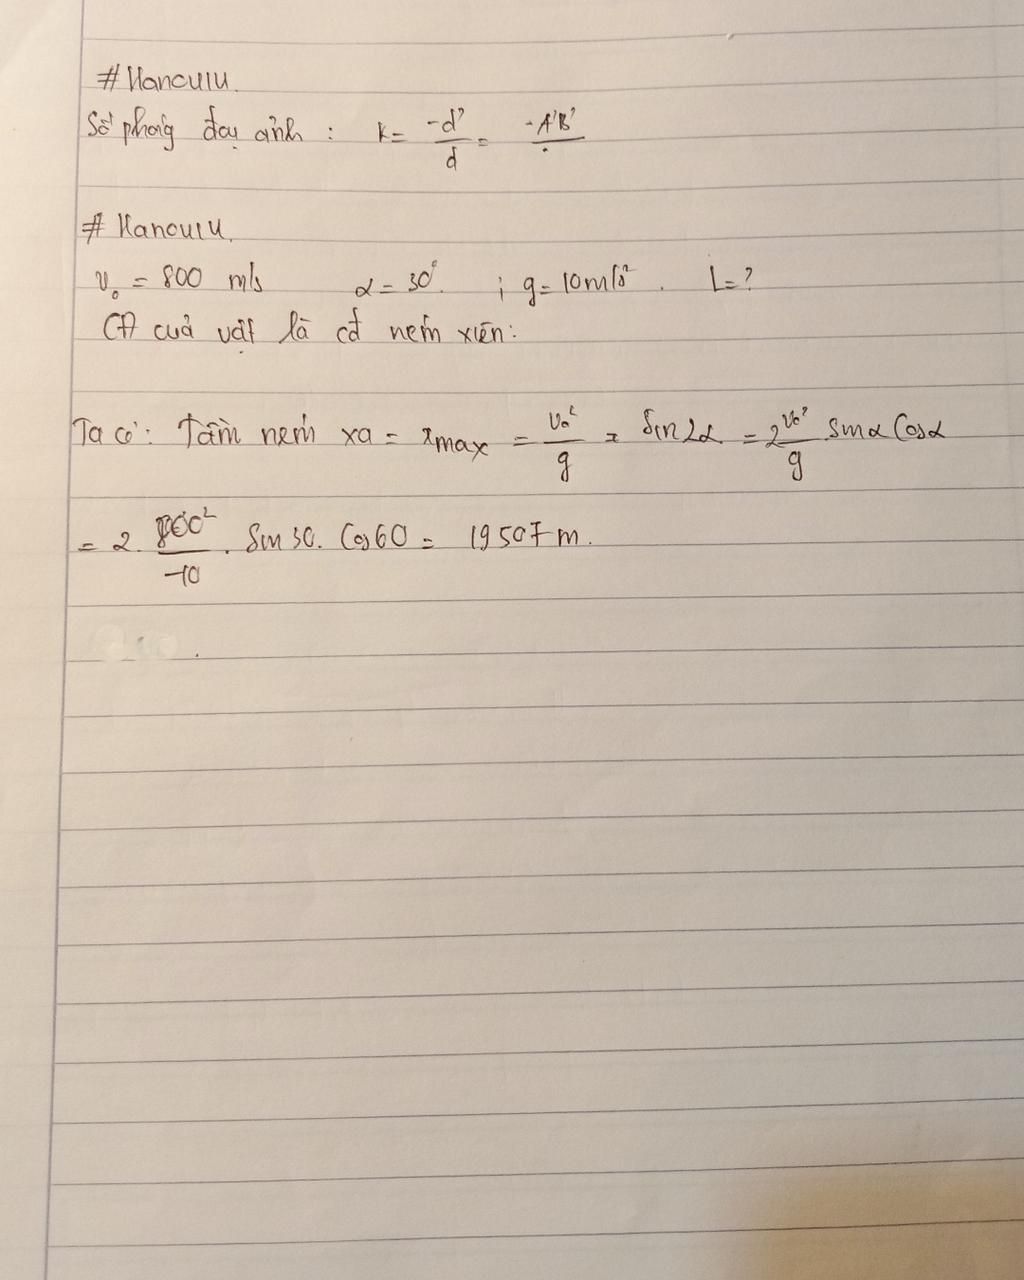 # Hancuiu.
Số phóng đại ảnh : k = -d'/d = -A'B'/
# Hancuiu.
v₀ = 800 m/s α = 30°. ; g = 10m/s². L = ?
CĐ của vật là cđ ném xiên:
Ta có: Tầm ném xa = xmax = v₀²/g = Sin 2α = 2 v₀²/g sinα Cosα
= 2. 800²/10 . Sin 30. Cos 60 = 19507 m.